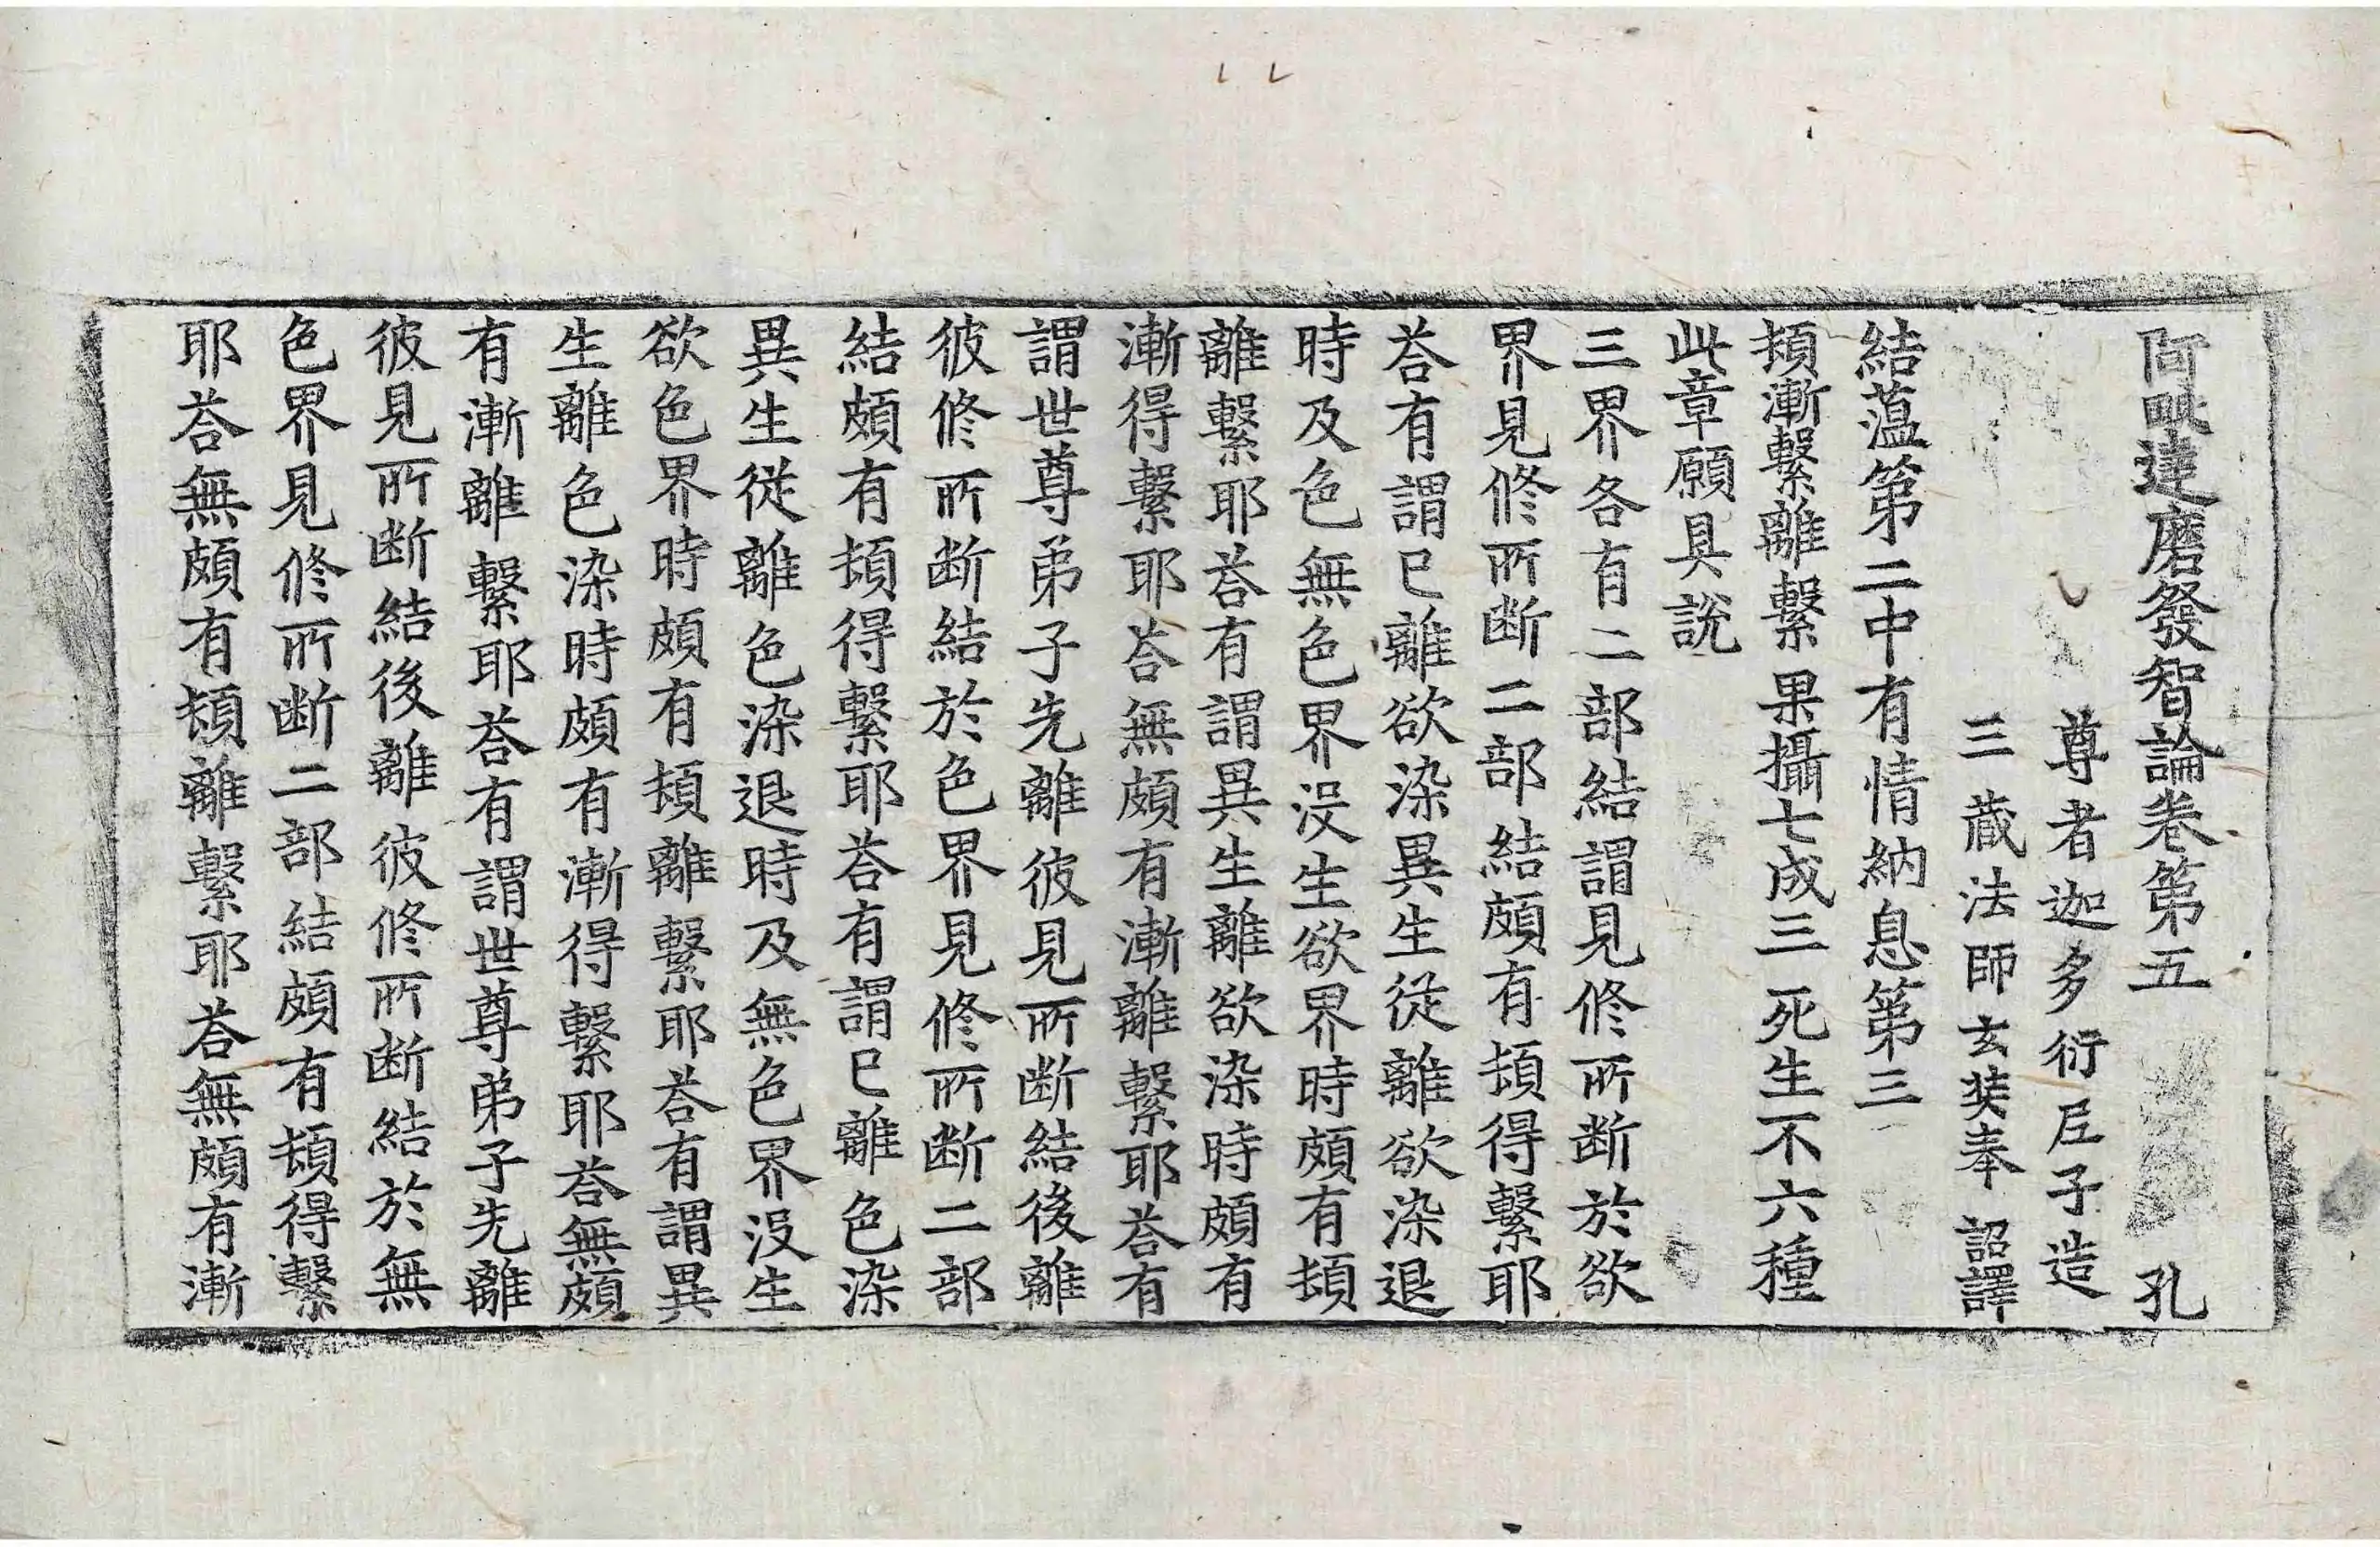 阿毗達磨發智論卷第五 孔
尊者迦多衍尼子造
三藏法師玄奘奉 詔譯
結薀第二中有情納息第三
頓漸繫離繫 果攝七成三 死生不六種
此章願具說
三界各有二部結謂見修所断於欲
界見修所断二部結頗有頓得繫耶
荅有謂已離欲染異生從離欲染退
時及色無色界没生欲界時頗有頓
離繫耶荅有謂異生離欲染時頗有
漸得繫耶荅無頗有漸離繫耶荅有
謂世尊弟子先離彼見所断結後離
彼修所断結於色界見修所断二部
結頗有頓得繫耶荅有謂已離色染
異生從離色染退時及無色界没生
欲色界時頗有頓離繫耶荅有謂異
生離色染時頗有漸得繫耶荅無頗
有漸離繫耶荅有謂世尊弟子先離
彼見所断結後離彼修所断結於無
色界見修所断二部結頗有頓得繫
耶荅無頗有頓離繫耶荅無頗有漸